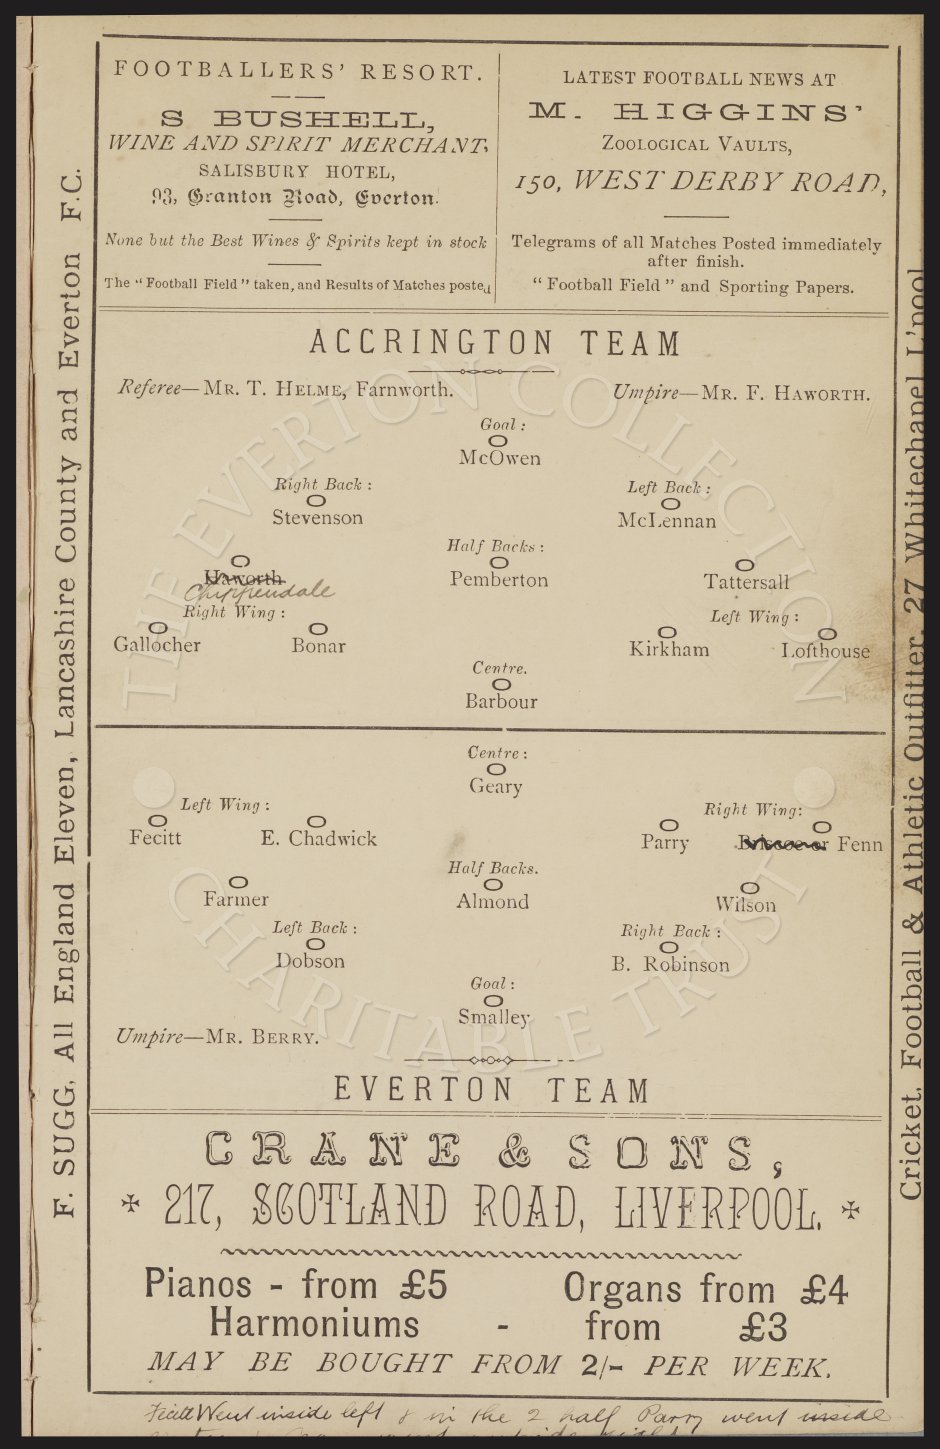 FOOTBALLERS' RESORT.
S BUSHELL,
WINE AND SPIRIT MERCHANT,
SALISBURY HOTEL,
93, Granton Road, Everton.
None but the Best Wines & Spirits kept in stock
The "Football Field" taken, and Results of Matches posted
LATEST FOOTBALL NEWS AT
M. HIGGINS'
ZOOLOGICAL VAULTS,
150, WEST DERBY ROAD,
Telegrams of all Matches Posted immediately
after finish.
"Football Field" and Sporting Papers.
F. SUGG, All England Eleven, Lancashire County and Everton F.C.
ACCRINGTON TEAM
Referee—MR. T. HELME, Farnworth. Umpire—MR. F. HAWORTH.
Goal:
McOwen
Right Back: Left Back:
Stevenson McLennan
Half Backs:
Haworth Pemberton Tattersall
Chippendale
Right Wing: Left Wing:
Gallocher Bonar Kirkham Lofthouse
Centre.
Barbour
Centre:
Geary
Left Wing: Right Wing:
Fecitt E. Chadwick Parry Briscoe or Fenn
Half Backs.
Farmer Almond Wilson
Left Back: Right Back:
Dobson B. Robinson
Goal:
Smalley
Umpire—MR. BERRY.
EVERTON TEAM
CRANE & SONS,
217, SCOTLAND ROAD, LIVERPOOL.
Pianos - from £5 Organs from £4
Harmoniums - from £3
MAY BE BOUGHT FROM 2/- PER WEEK.
Cricket, Football & Athletic Outfitter, 27 Whitechapel L'pool
Fecitt Went inside left & in the 2 half Parry went inside
THE EVERTON COLLECTION
CHARITABLE TRUST